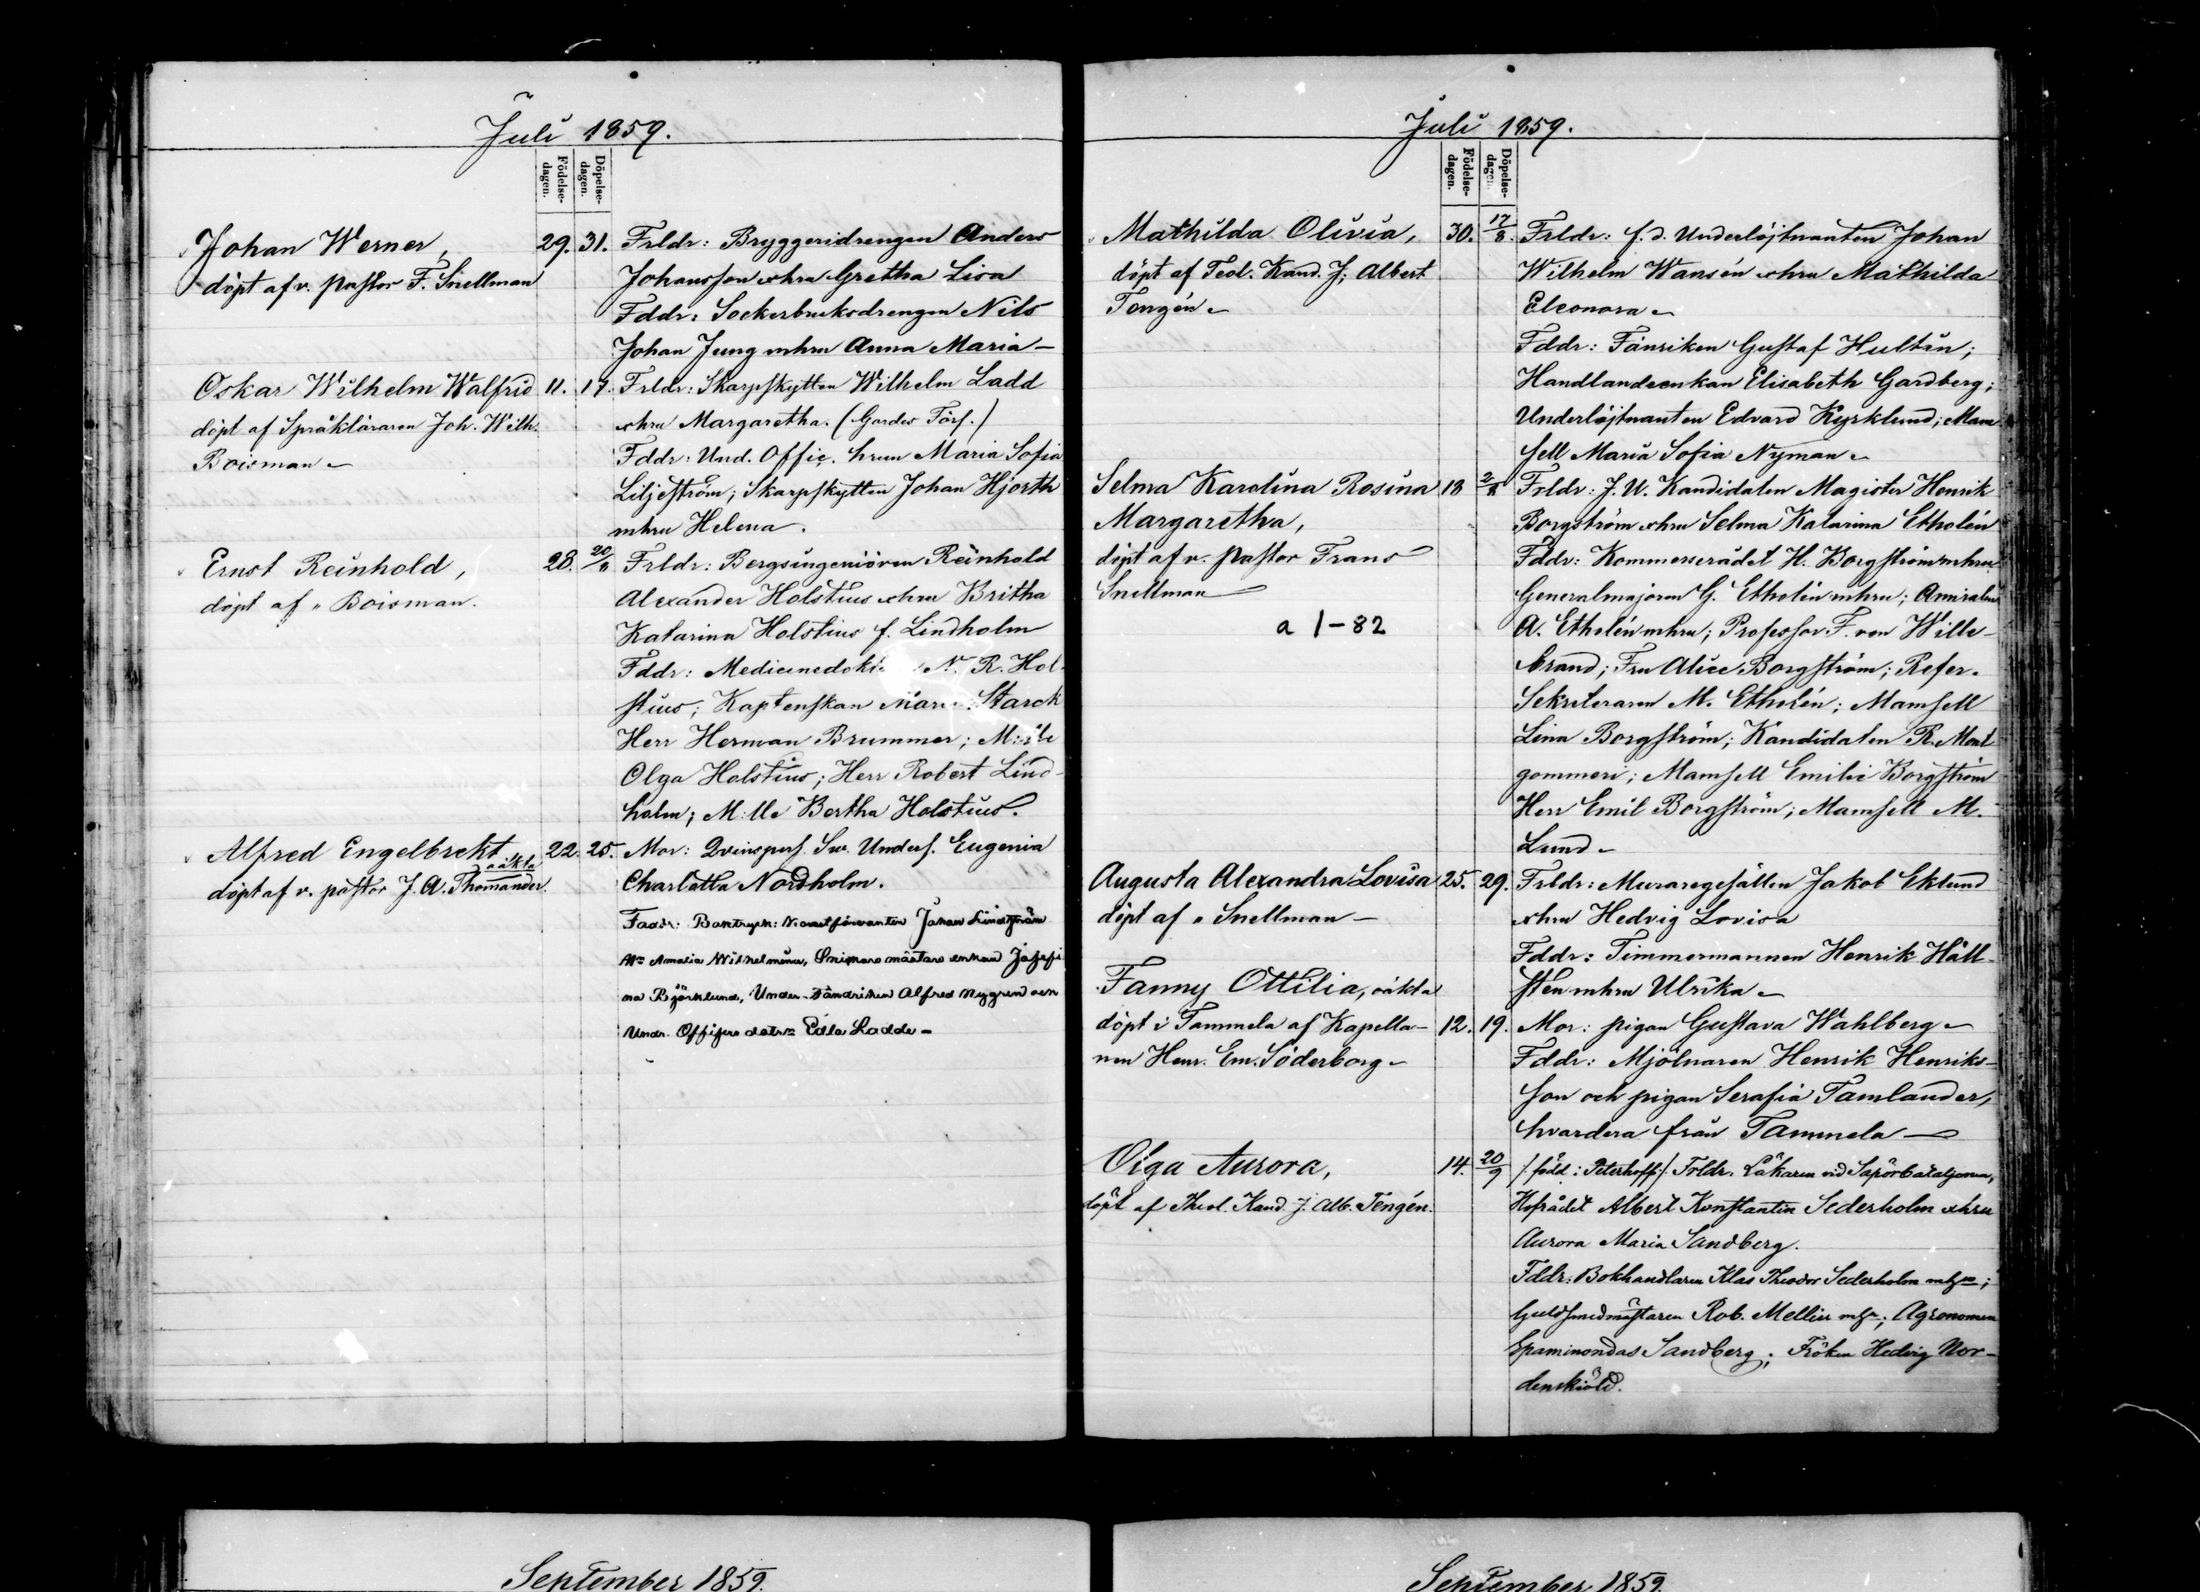 Juli 1859.
Födelse-
dagen.
Döpelse-
dagen.
Johan Werner,
döpt af v. pastor F. Snellman
29. 31.
Frldr: Bryggeridrengen Anders
Johansson o hru Gretha Lisa
Fddr: Sockerbruksdrengen Nils
Johan Jung mhru Anna Maria –
Oskar Wilhelm Walfrid
döpt af Språkläraren Joh. Wilh.
Boisman –
11. 17.
Frldr: Skarpskytten Wilhelm Ladd
o hru Margaretha. (Gardes Förs.)
Fddr: Und. Offic. hrun Maria Sofia
Liljeström; Skarpskytten Johan Hjorth
mhru Helena.
Ernst Reinhold,
döpt af " Boisman.
28. 20/8
Frldr: Bergsingeniören Reinhold
Alexander Holstius o hru Britha
Katarina Holstius f. Lindholm
Fddr: N. R. Hol-
stius; Kaptenskan Starck
Herr Herman Brummer; M:lle
Olga Holstius; Herr Robert Lind-
holm; M:lle Bertha Holstius.
Alfred Engelbrekt
oäkta
döpt af v. pastor J. A. Thomander.
22. 25.
Mor: Qvinspers. Sw. Unders. Eugenia
Charlotta Nordholm.
Faddr: Johan Lindström
Amalia Wilhelmina, enkan Josefi
na Björklund, Alfred Nygren och
Undr. Offisers Edla Ladde –
Juli 1859.
Födelse-
dagen.
Döpelse-
dagen.
Mathilda Olivia,
döpt af Teol. Kand. J. Albert
Tengén –
30. 17/8.
Frldr: f.d. Underlöjtnanten Johan
Wilhelm Wansén o hru Mathilda
Eleonora –
Fddr: Fänriken Gustaf Hultin;
Handlandeenkan Elisabeth Gardberg;
Underlöjtnanten Edvard Kyrklund; Mam-
sell Maria Sofia Nyman –
Selma Karolina Rosina
Margaretha,
döpt af v. pastor Frans
Snellman
a 1-82
18 2/8
Frldr: J. U. Kandidaten Magister Henrik
Borgström o hru Selma Katarina Etholén
Fddr: Kommerserådet H. Borgström mhru
Generalmajoren G. Etholén mhru; Amiralen
A. Etholén mhru; Professor F. von Wille-
brand; Fru Alice Borgström; Refer.
Sekreteraren M. Etholén; Mamsell
Lina Borgström; Kandidaten R. Mont
gommeri; Mamsell Emilie Borgström
Herr Emil Borgström; Mamsell M.
Lund –
Augusta Alexandra Lovisa
döpt af " Snellman –
25. 29.
Frldr: Muraregesällen Jakob Eklund
o hru Hedvig Lovisa
Fddr: Timmermannen Henrik Häll-
sten mhru Ulrika –
Fanny Ottilia, oäkta
döpt i Tammela af Kapella-
nen Henr. Em. Söderborg –
12. 19.
Mor: pigan Gustava Wahlberg –
Fddr: Mjölnaren Henrik Henriks-
son och pigan Serafia Tamlander,
hvardera från Tammela –
Olga Aurora,
döpt af Theol. Kand. J. Alb. Tengén.
14. 20/9
/: född i Peterhoff :/ Frldr. Läkaren vid Sapörbataljonen,
Hofrådet Albert Konstantin Sederholm o hru
Aurora Maria Sandberg.
Fddr: Bokhandlaren Klas Theodor Sederholm mhru;
Guldsmedmästaren Rob. Mellin mhru; Agronomen
Epaminondas Sandberg; Fröken Hedvig Nor-
denskiöld.
September 1859.
September 1859.